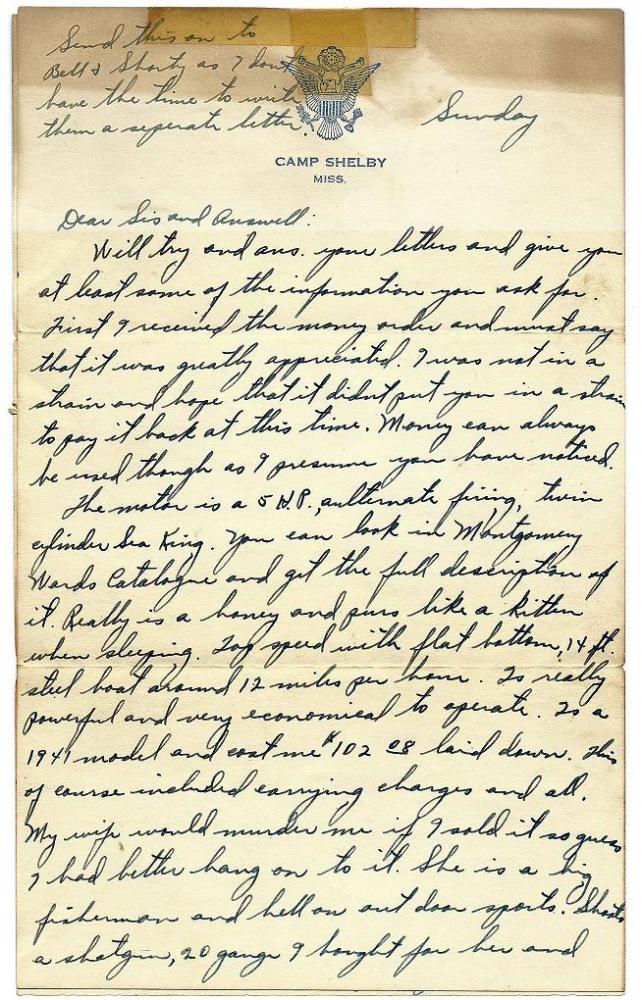 Send this on to
Bell & Shorty as I don't
have the time to write
them a seperate letter.
Sunday
CAMP SHELBY
MISS.
Dear Sis and Answell:
Will try and ans. your letters and give you
at least some of the information you ask for.
First I received the money order and must say
that it was greatly appreciated. I was not in a
strain and hope that it didn't put you in a strain
to pay it back at this time. Money can always
be used though as I presume you have noticed.
The motor is a 5 H.P., aulternate firing, twin
cylinder Sea King. You can look in Montgomery
Wards Catalogue and get the full description of
it. Really is a honey and purs like a kitten
when sleeping. Top speed with flat bottom, 14 ft.
steel boat around 12 miles per hour. Is really
powerful and very economical to operate. Is a
1941 model and cost me $102 08 laid down. This
of course included carrying charges and all.
My wife would murder me if I sold it so guess
I had better hang on to it. She is a big
fisherman and hell on out door sports. Shoots
a shotgun, 20 gauge I bought for her and